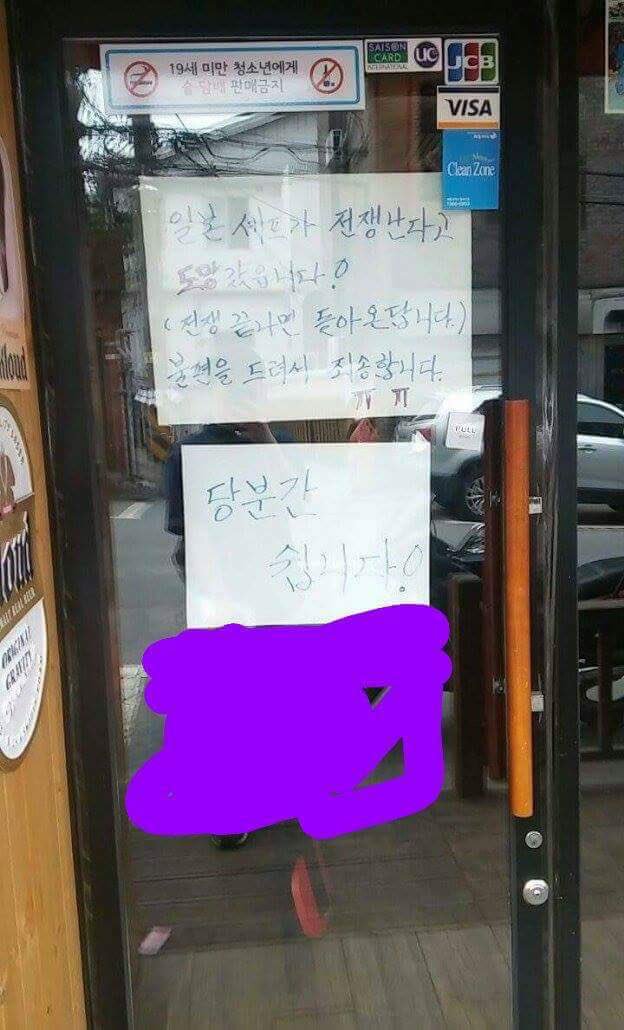 19세 미만 청소년에게
술 담배 판매금지
SAISON
CARD
INTERNATIONAL
UC
JCB
VISA
Clean Zone
일본 셰프가 전쟁난다고
도망 갔읍니다!
(전쟁 끝나면 돌아 온답니다.)
불편을 드려서 죄송합니다.
ㅠ ㅠ
PULL
당분간
쉽니다!
ORIGINAL
GRAVITY